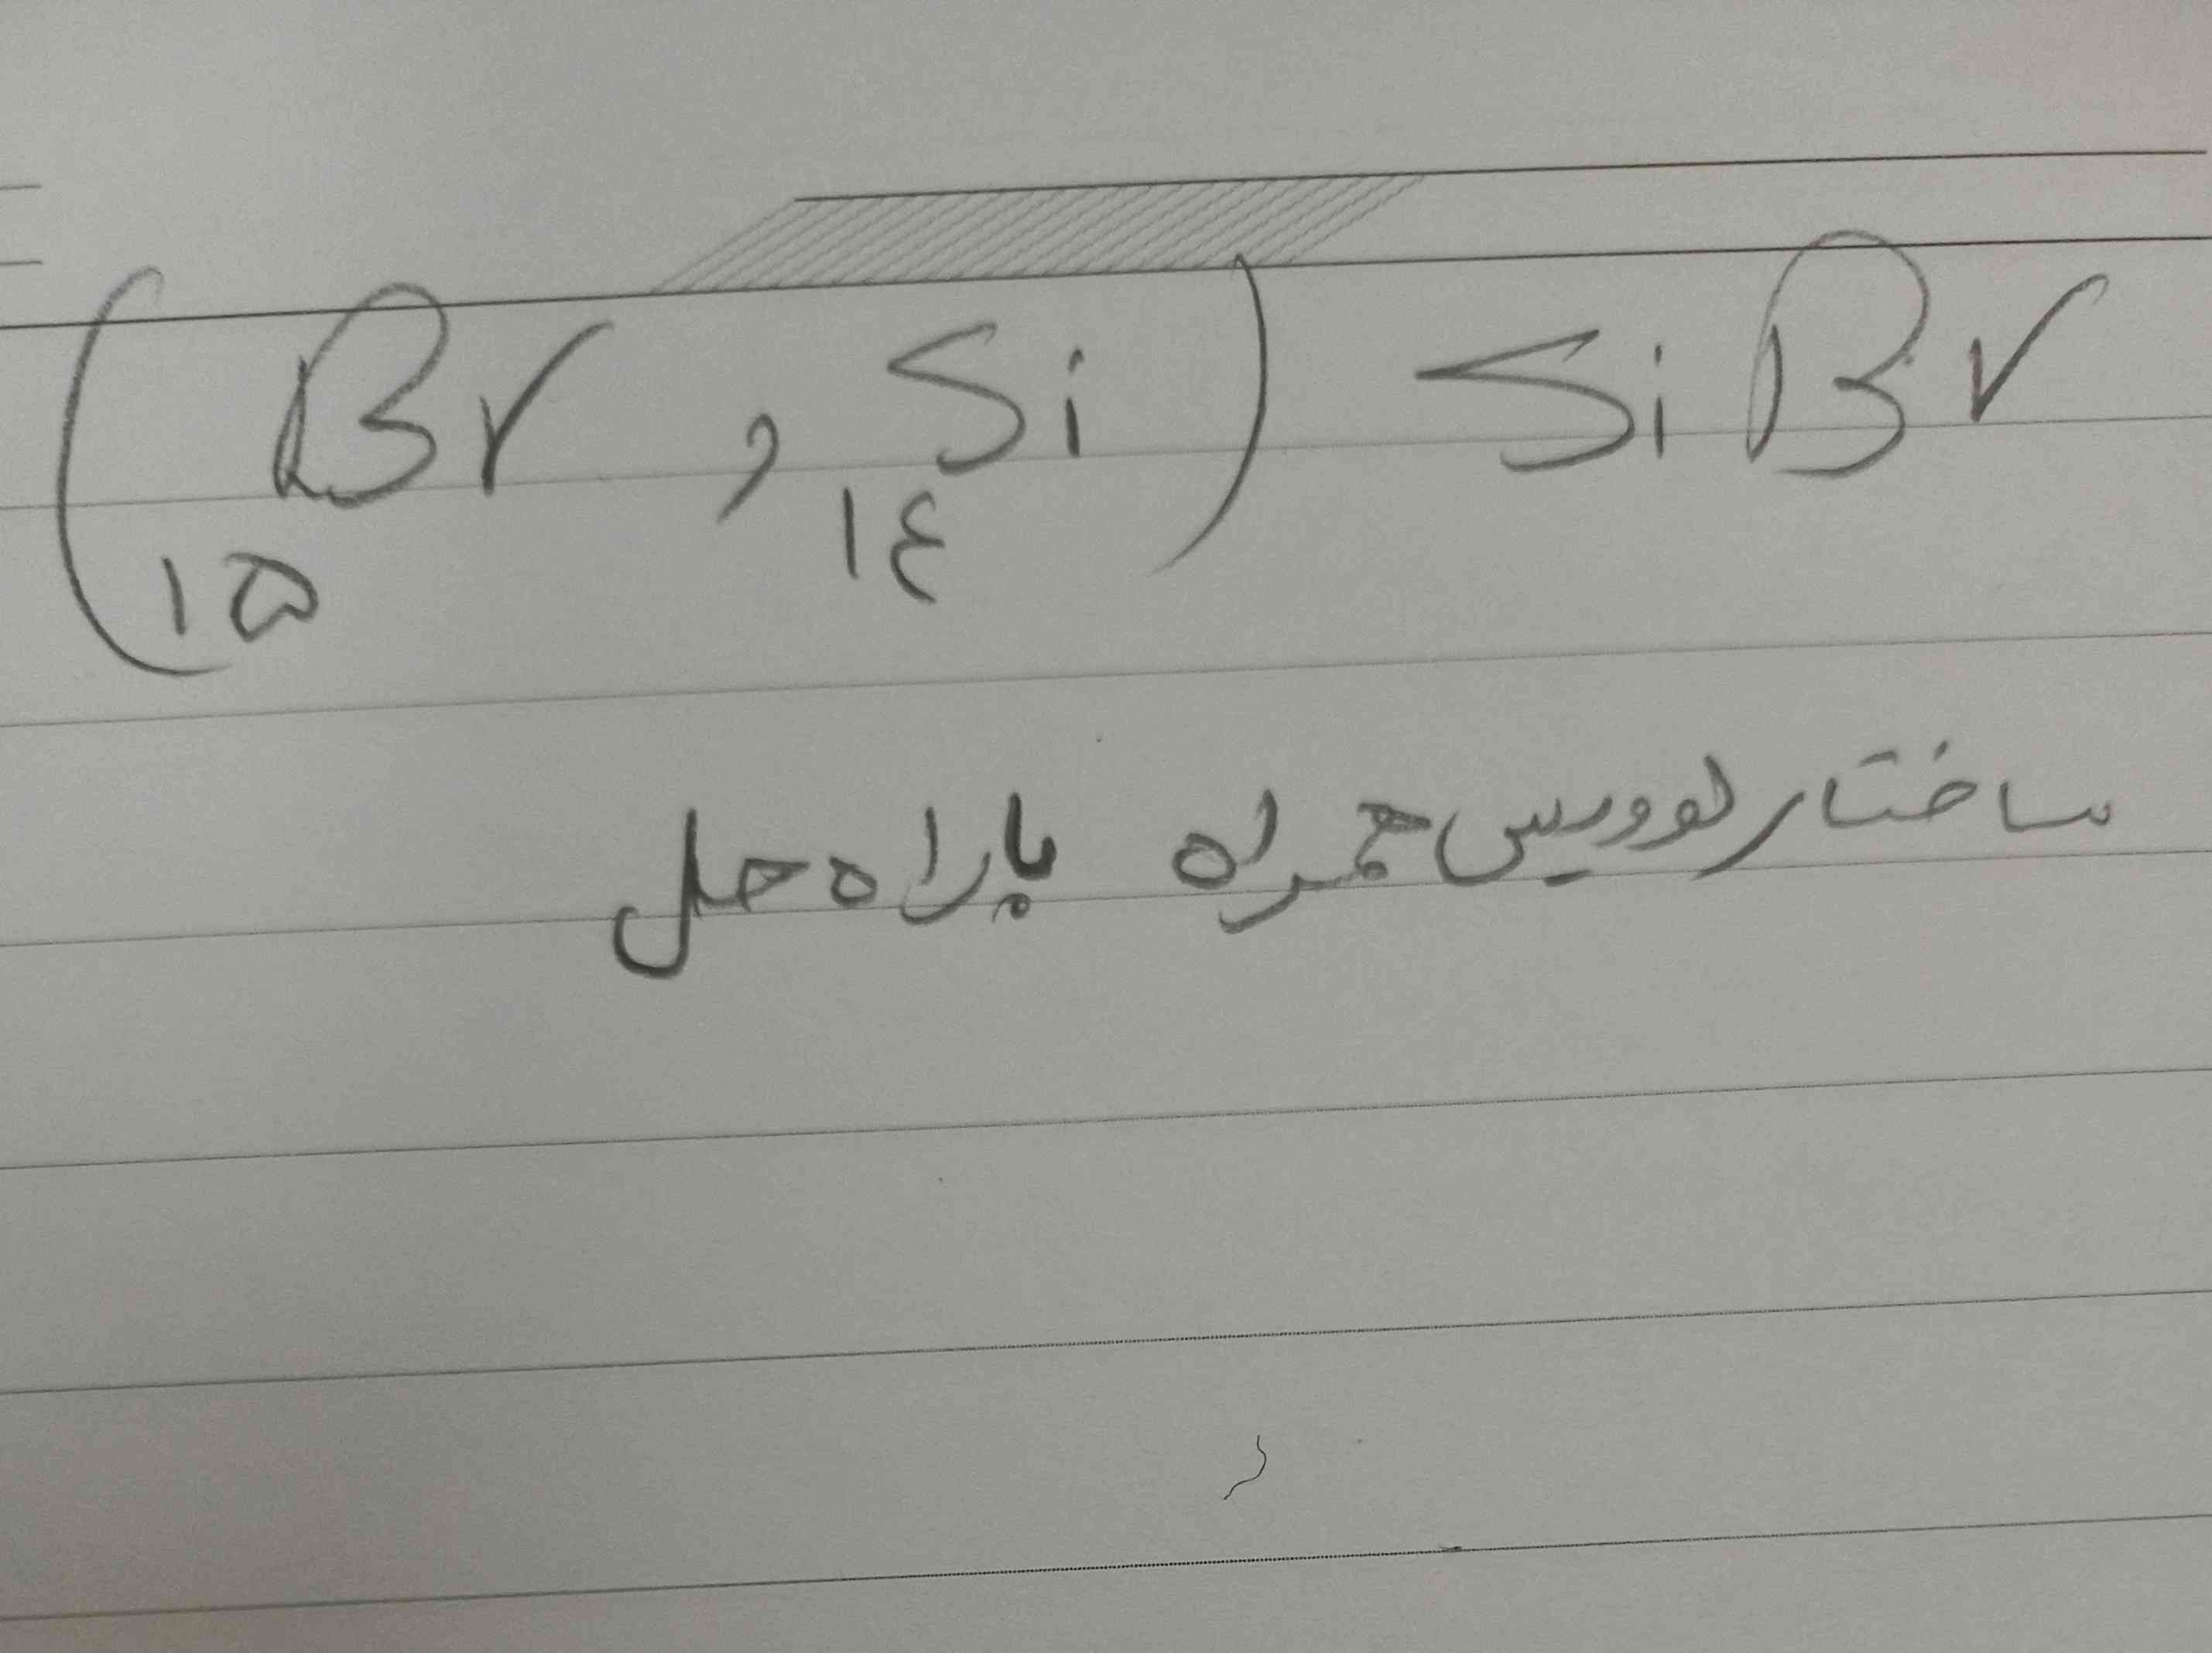 (Br , Si) SiBr
۱۵ ۱۴
ساختار لوویس همراه با راه حل